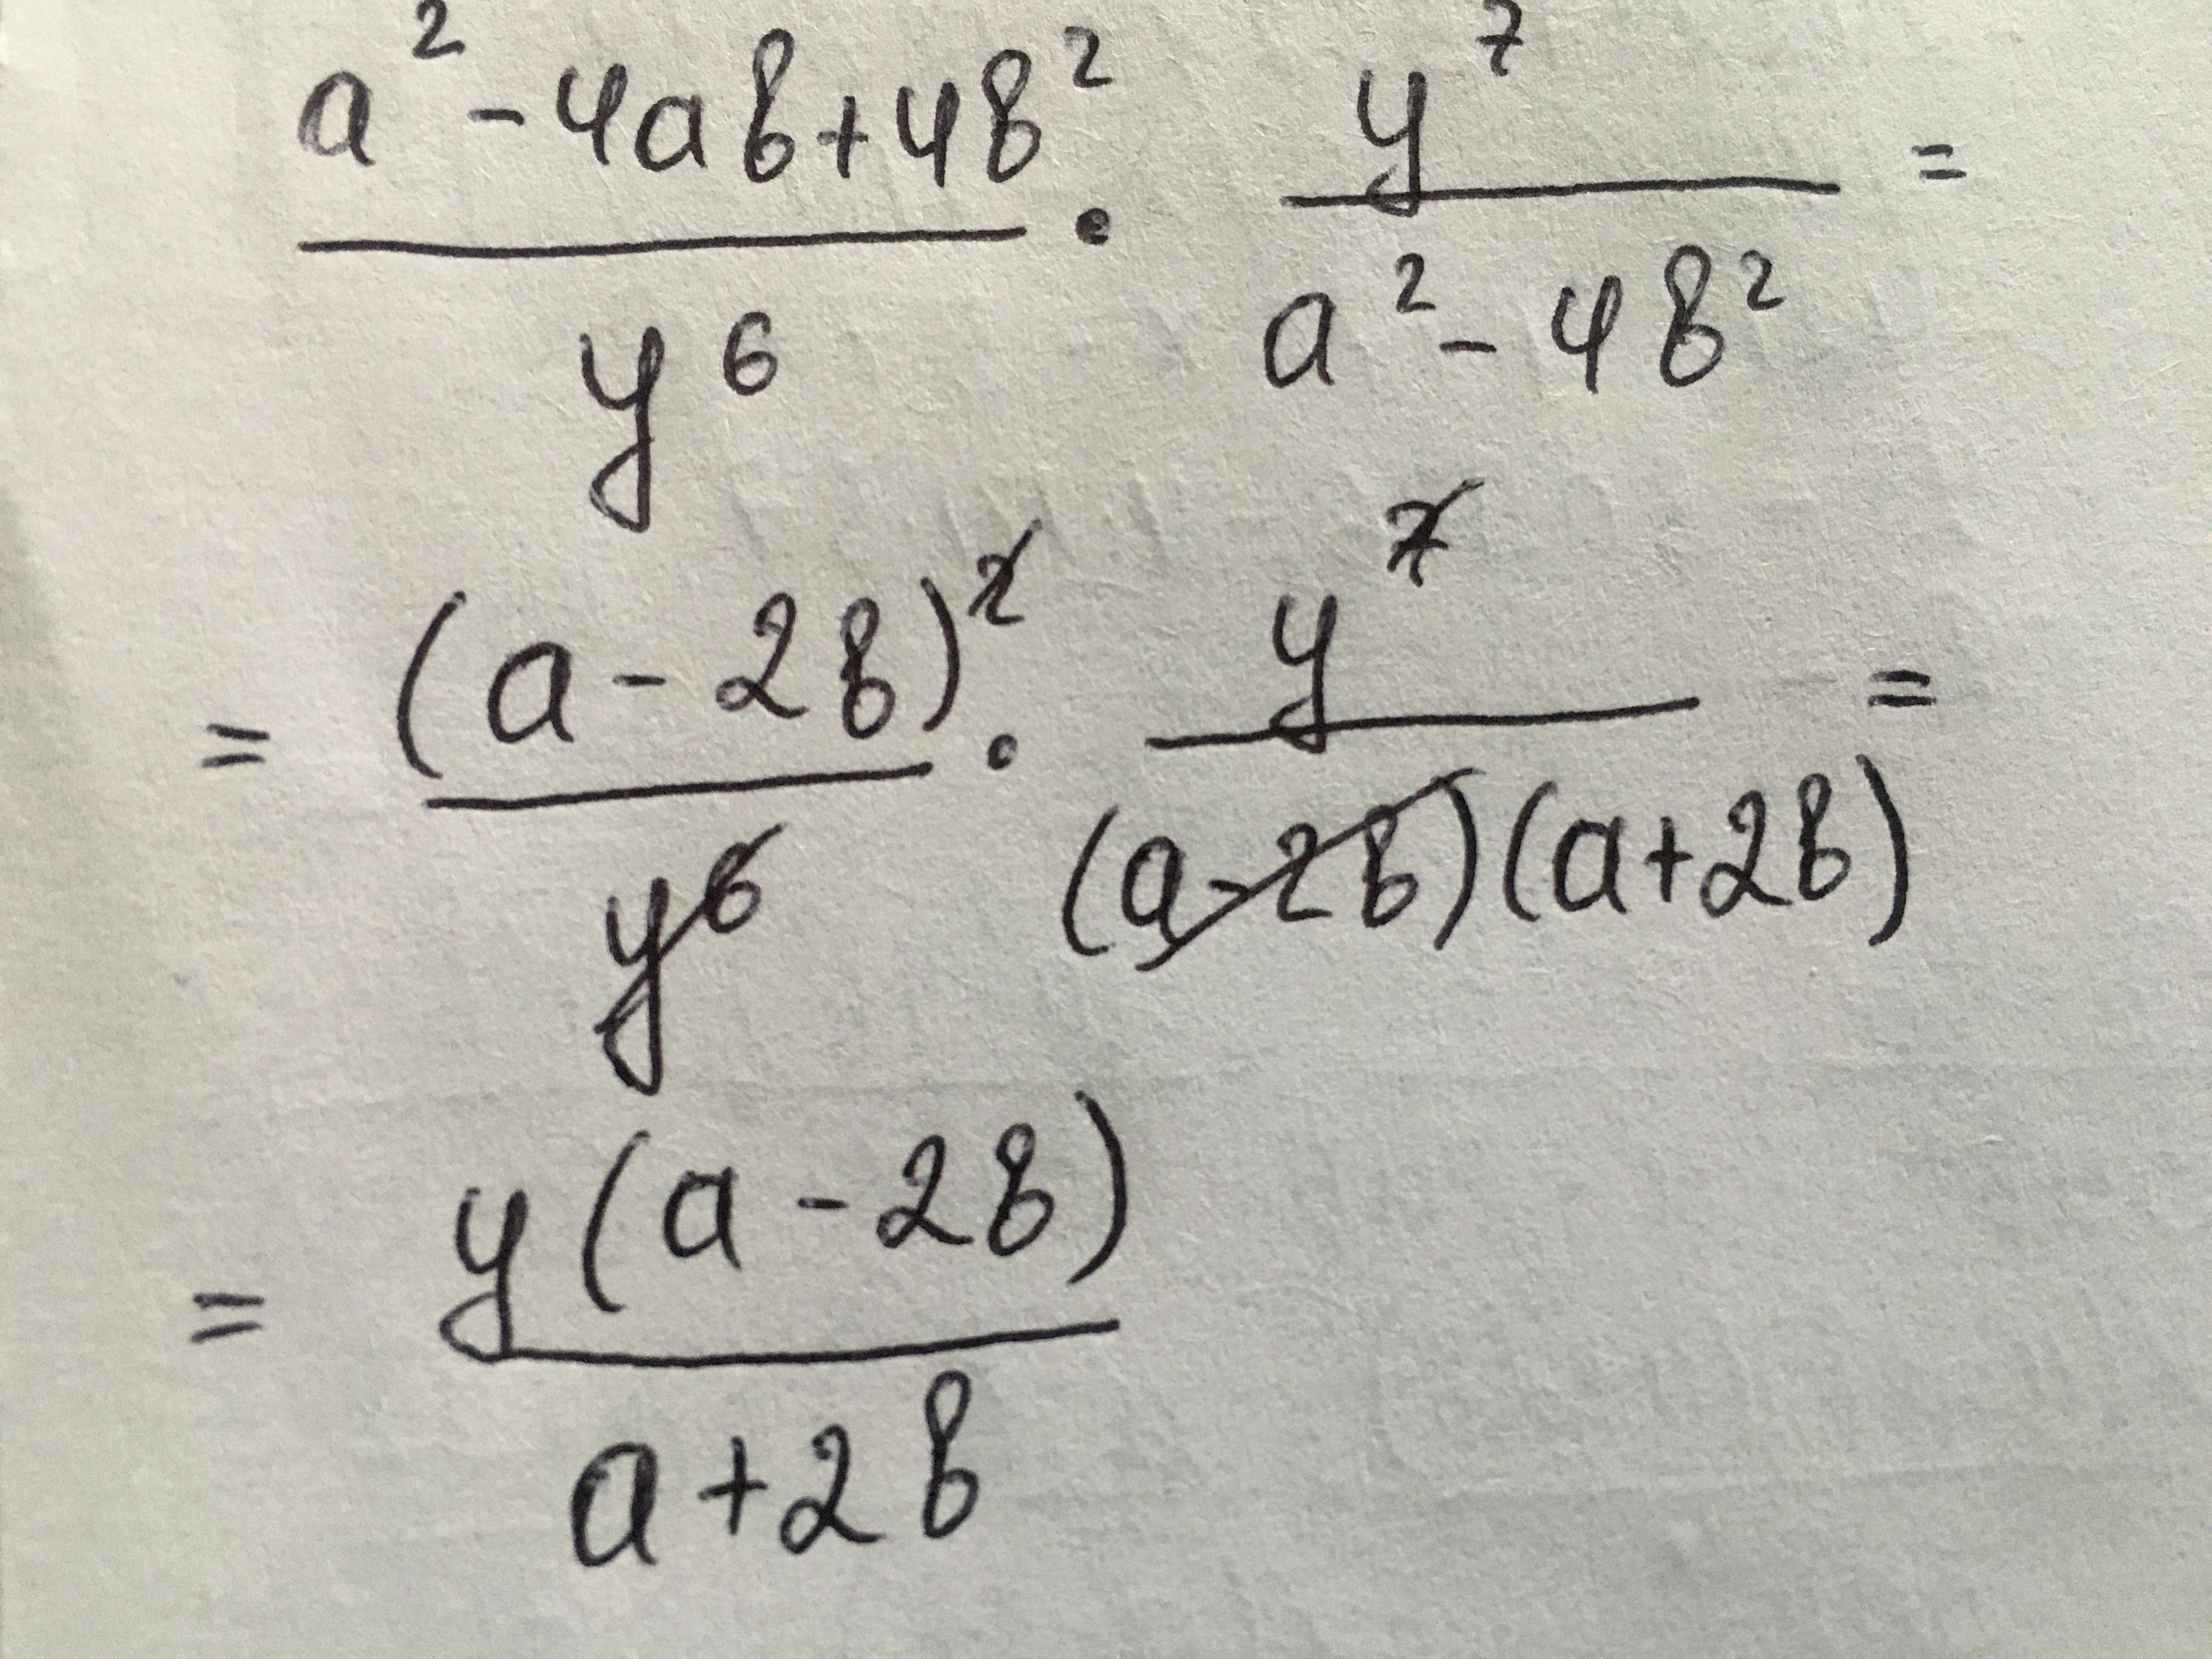 a² - 4ab + 4b² / y⁶ · y⁷ / a² - 4b² =
= (a - 2b)² / y⁶ · y⁷ / (a - 2b)(a + 2b) =
= y(a - 2b) / a + 2b